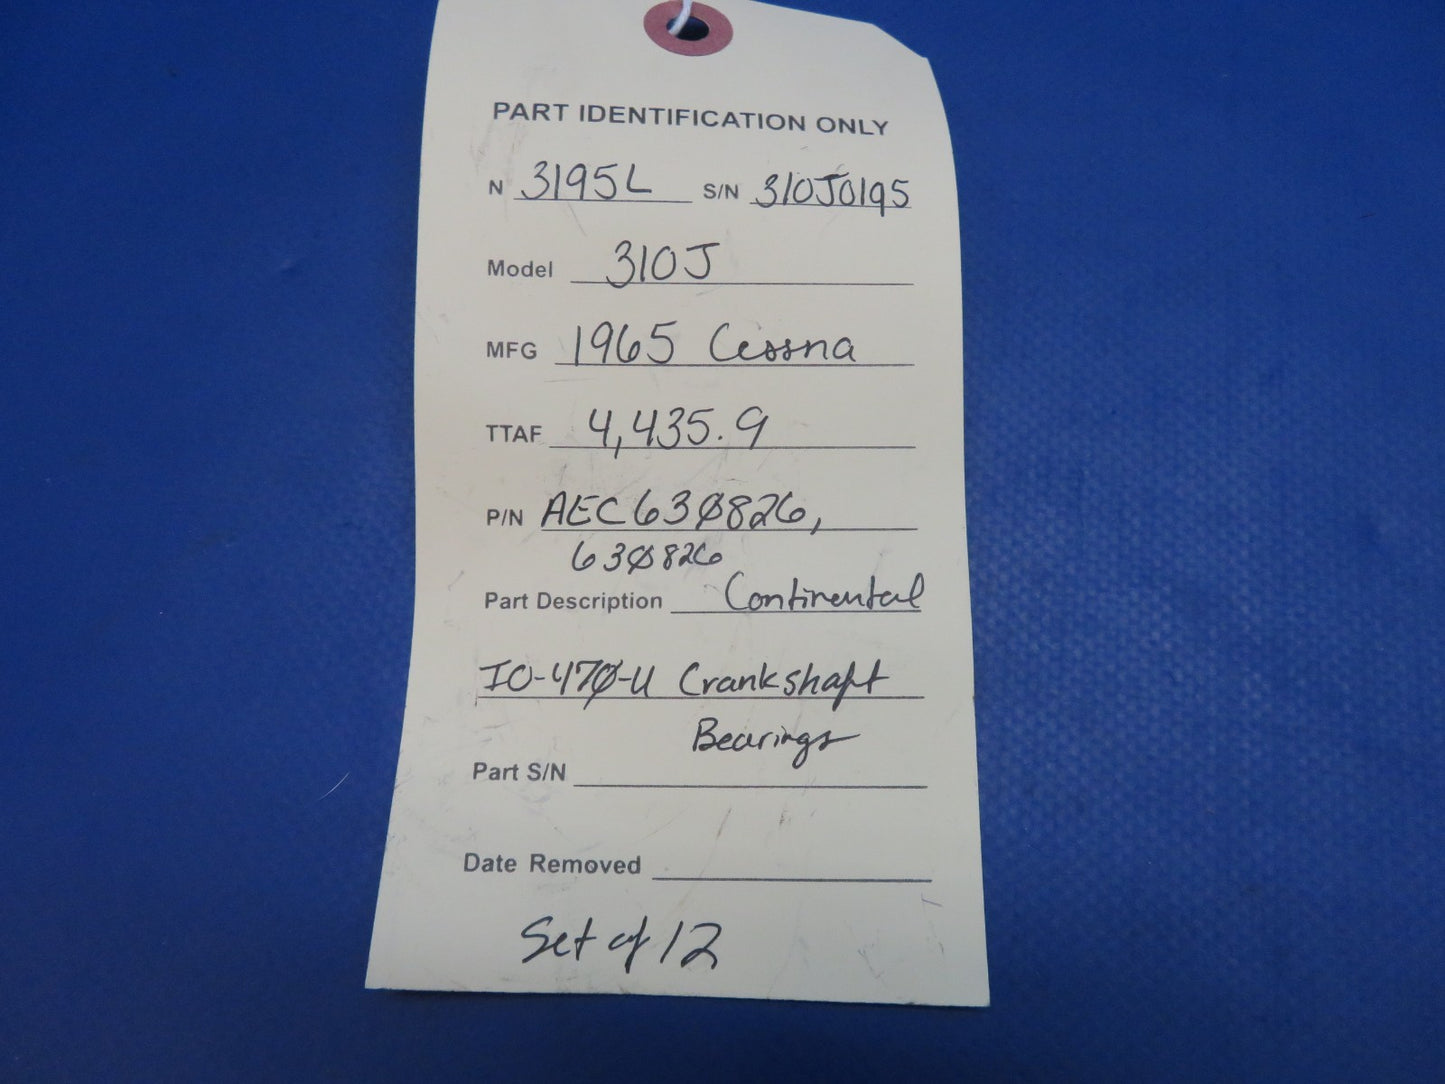 PART IDENTIFICATION ONLY
N 3195L S/N 310J0195
Model 310J
MFG 1965 Cessna
TTAF 4,435.9
P/N AEC63Ø826,
63Ø826
Part Description Continental
IO-47Ø-U Crankshaft
Bearings
Part S/N
Date Removed
Set of 12